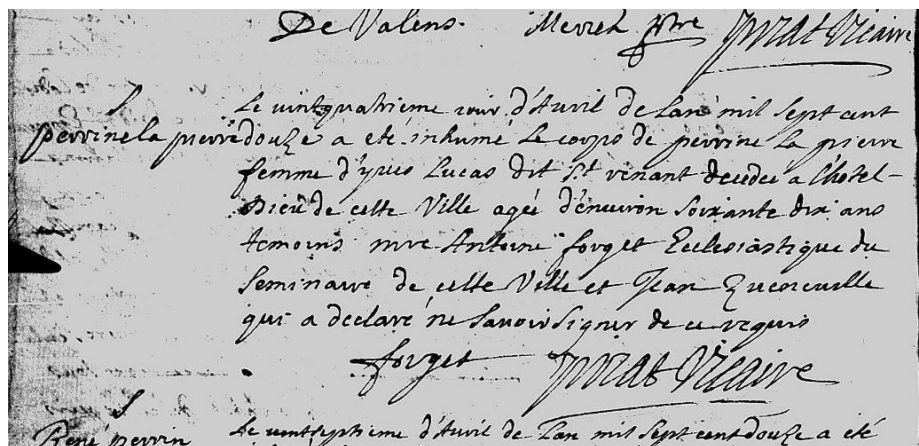 De Valens. Meriel ptre Priat Vicaire
S
perrine la pierre
Le vintquatrieme iour d'Auril de Lan mil Sept cent
douze a eté inhumé Le corps de perrine La pierre
femme d'yues Lucas dit St. venant decedee a l'hotel-
Dieu de cette Ville agée d'enuiron Soixante dix ans
temoins mre Antoine forget Ecclesiastique du
Seminaire de cette Ville et Jean
qui a declaré ne Sauoir Signer de ce requis
forget Priat Vicaire
S
René perrin
Le vintseptieme d'Auril de Lan mil Sept cent douze a eté